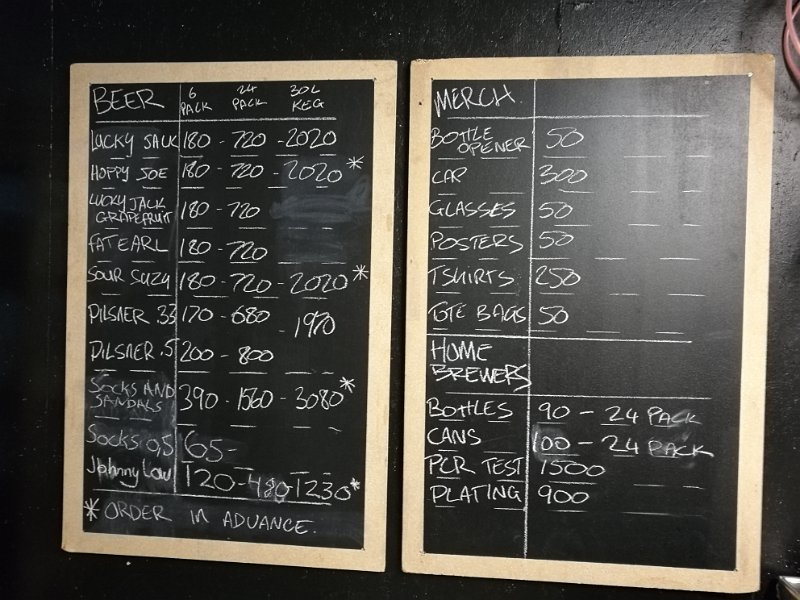 BEER 6 PACK 24 PACK 30L KEG
LUCKY JACK 180 - 720 - 2020
HOPPY JOE 180 - 720 - 2020 *
LUCKY JACK
GRAPEFRUIT 180 - 720
FATEARL 180 - 720
SOUR SUZY 180 - 720 - 2020 *
PILSNER .33 170 - 680 - 1970
PILSNER .5 200 - 800
SOCKS AND
SANDALS 390 - 1560 - 3080 *
Socks 0,5 65-
Johnny Low 120 - 480 - 1230 *
* ORDER IN ADVANCE.
MERCH.
BOTTLE
OPENER 50
CAP 300
GLASSES 50
POSTERS 50
TSHIRTS 250
TOTE BAGS 50
HOME
BREWERS
BOTTLES 90 - 24 PACK
CANS 100 - 24 PACK
PCR TEST 1500
PLATING 900